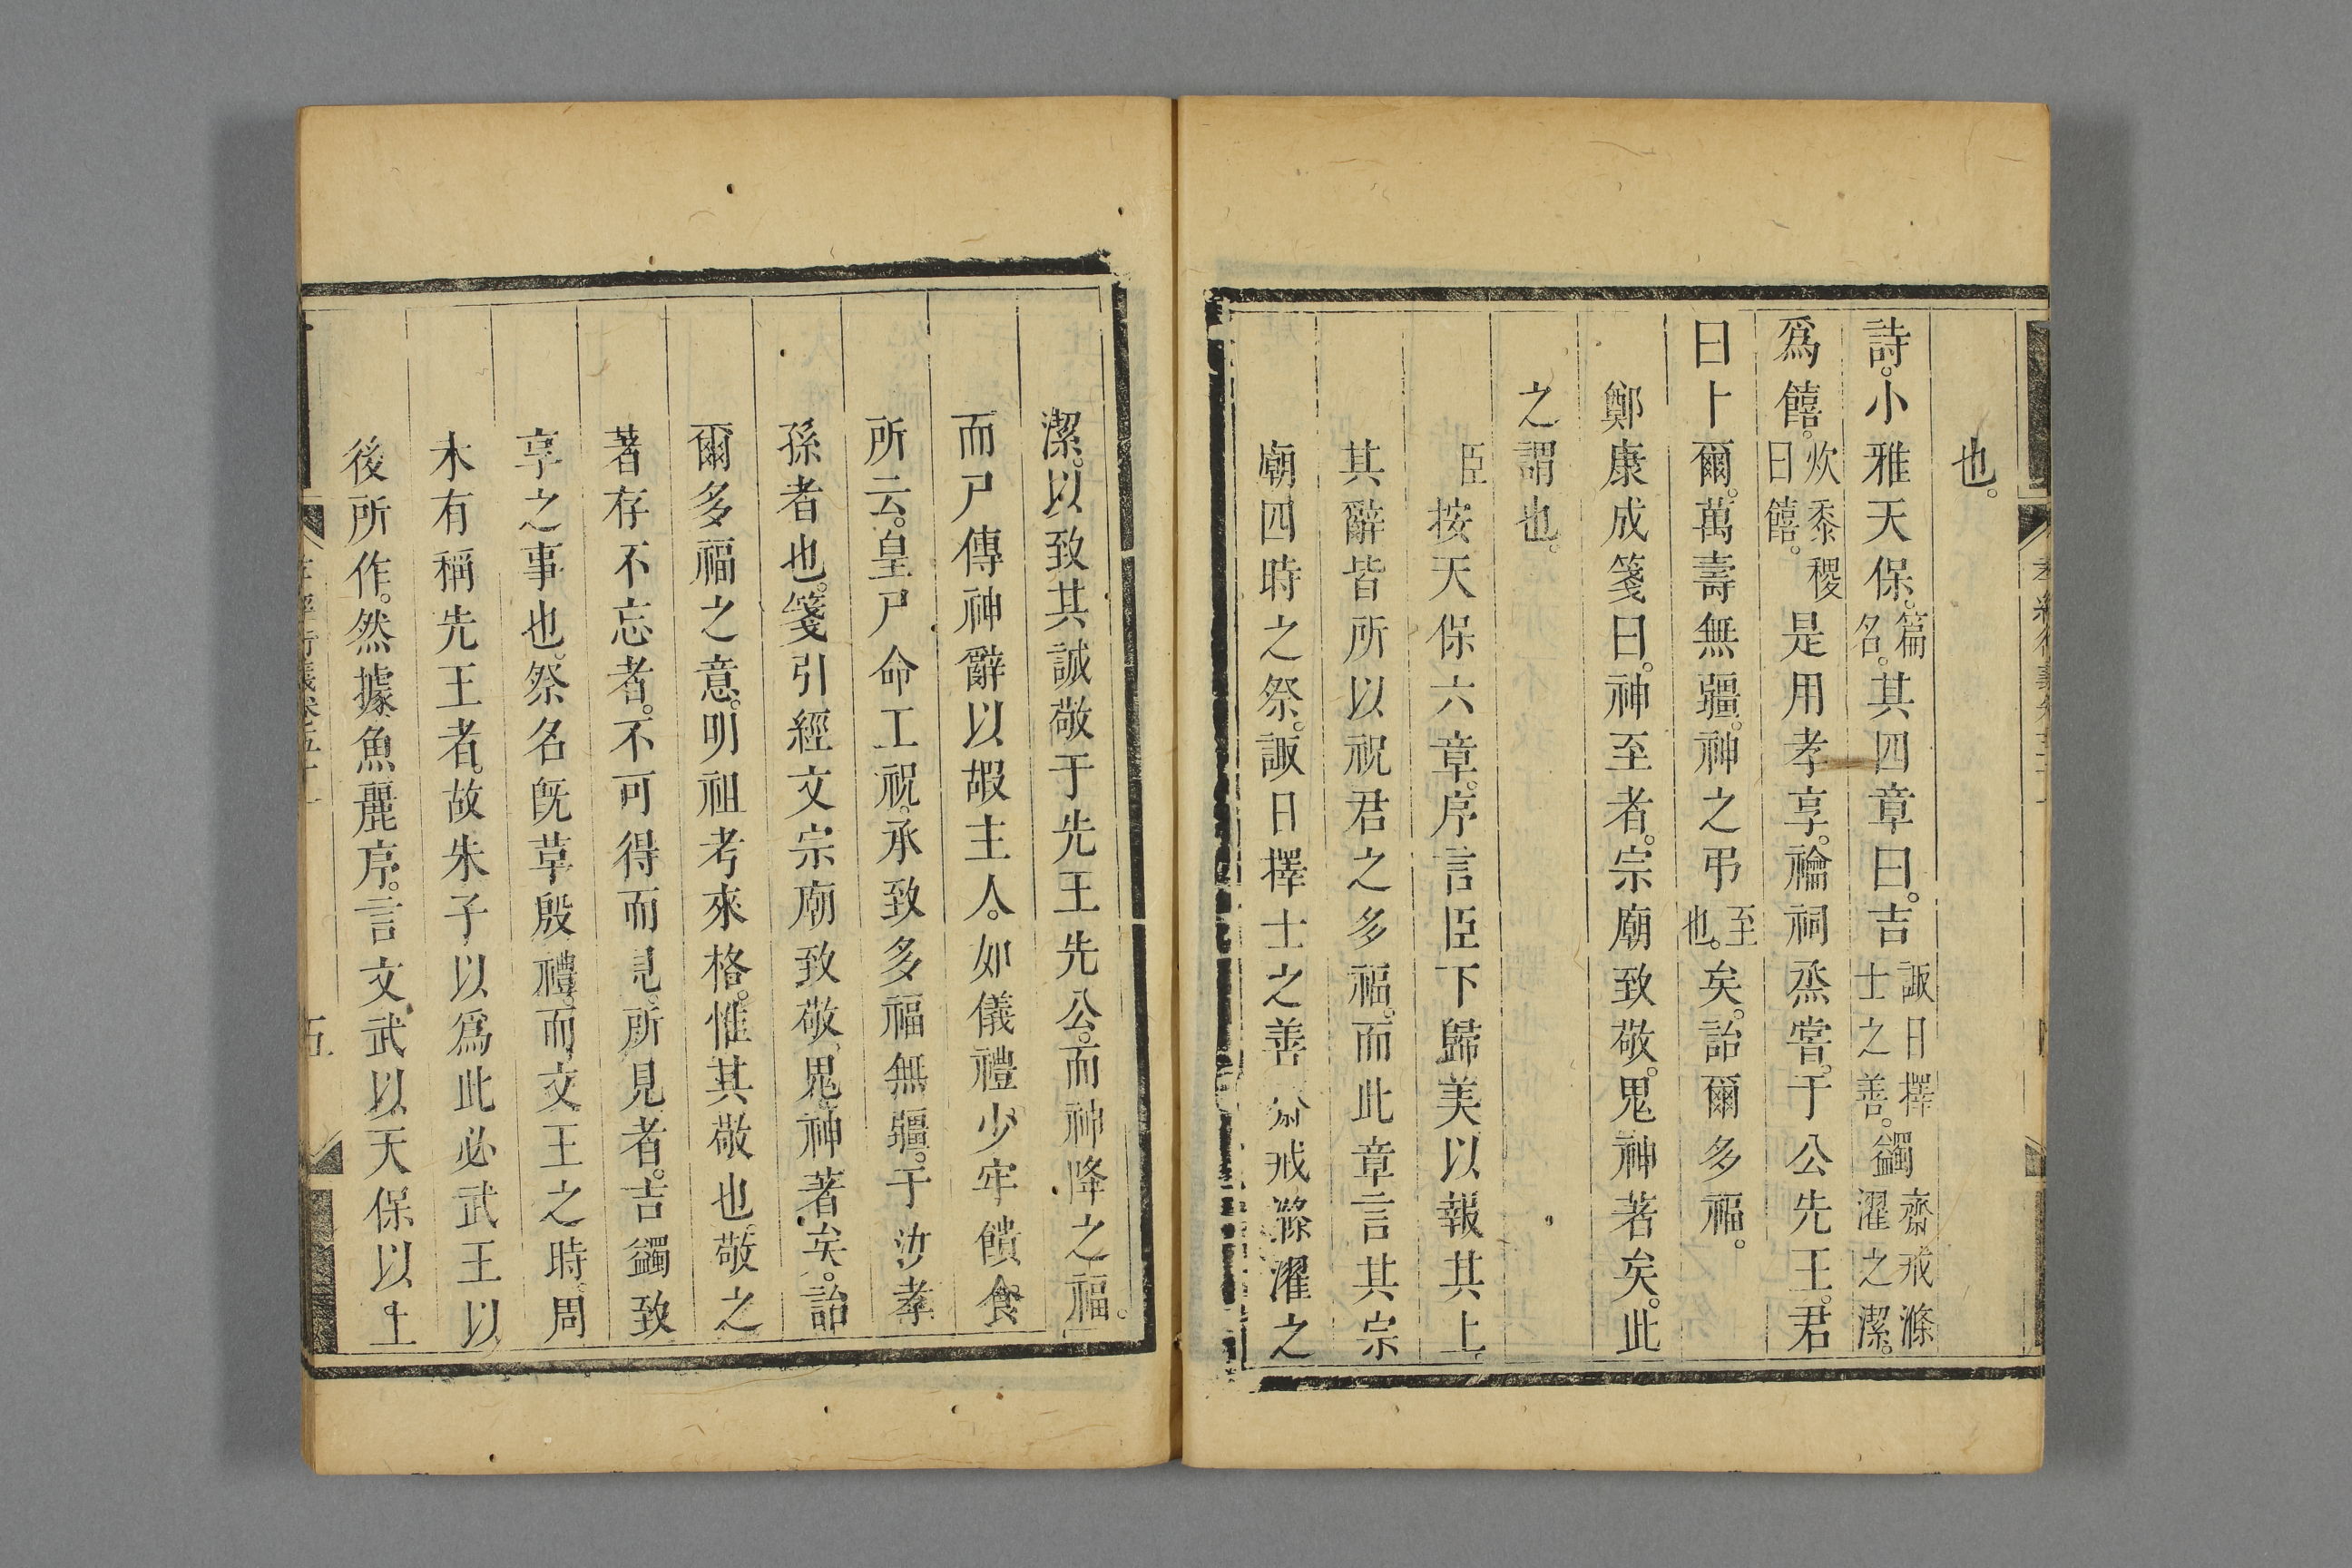 也。
詩。小雅天保。篇名。其四章曰。吉諏日擇士之善。蠲齋戒滌濯之潔。
爲饎。炊黍稷曰饎。是用孝享。禴祠烝嘗。于公先王。君
曰卜爾。萬壽無疆。神之弔至也。矣。詒爾多福。
鄭康成箋曰。神至者。宗廟致敬。鬼神著矣。此
之謂也。
臣按天保六章。序言臣下歸美以報其上
其辭皆所以祝君之多福。而此章言其宗
廟四時之祭。諏日擇士之善齋戒滌濯之
潔。以致其誠敬于先王先公。而神降之福。
而尸傳神辭以嘏主人。如儀禮少牢饋食
所云。皇尸命工祝。承致多福無疆。于汝孝
孫者也。箋引經文宗廟致敬。鬼神著矣。詒
爾多福之意。明祖考來格。惟其敬也。敬之
著存不忘者。不可得而見。所見者。吉蠲致
享之事也。祭名旣革殷禮。而文王之時。周
未有稱先王者。故朱子以爲此必武王以
後所作。然據魚麗序。言文武以天保以上
孝經衍義卷五十
五